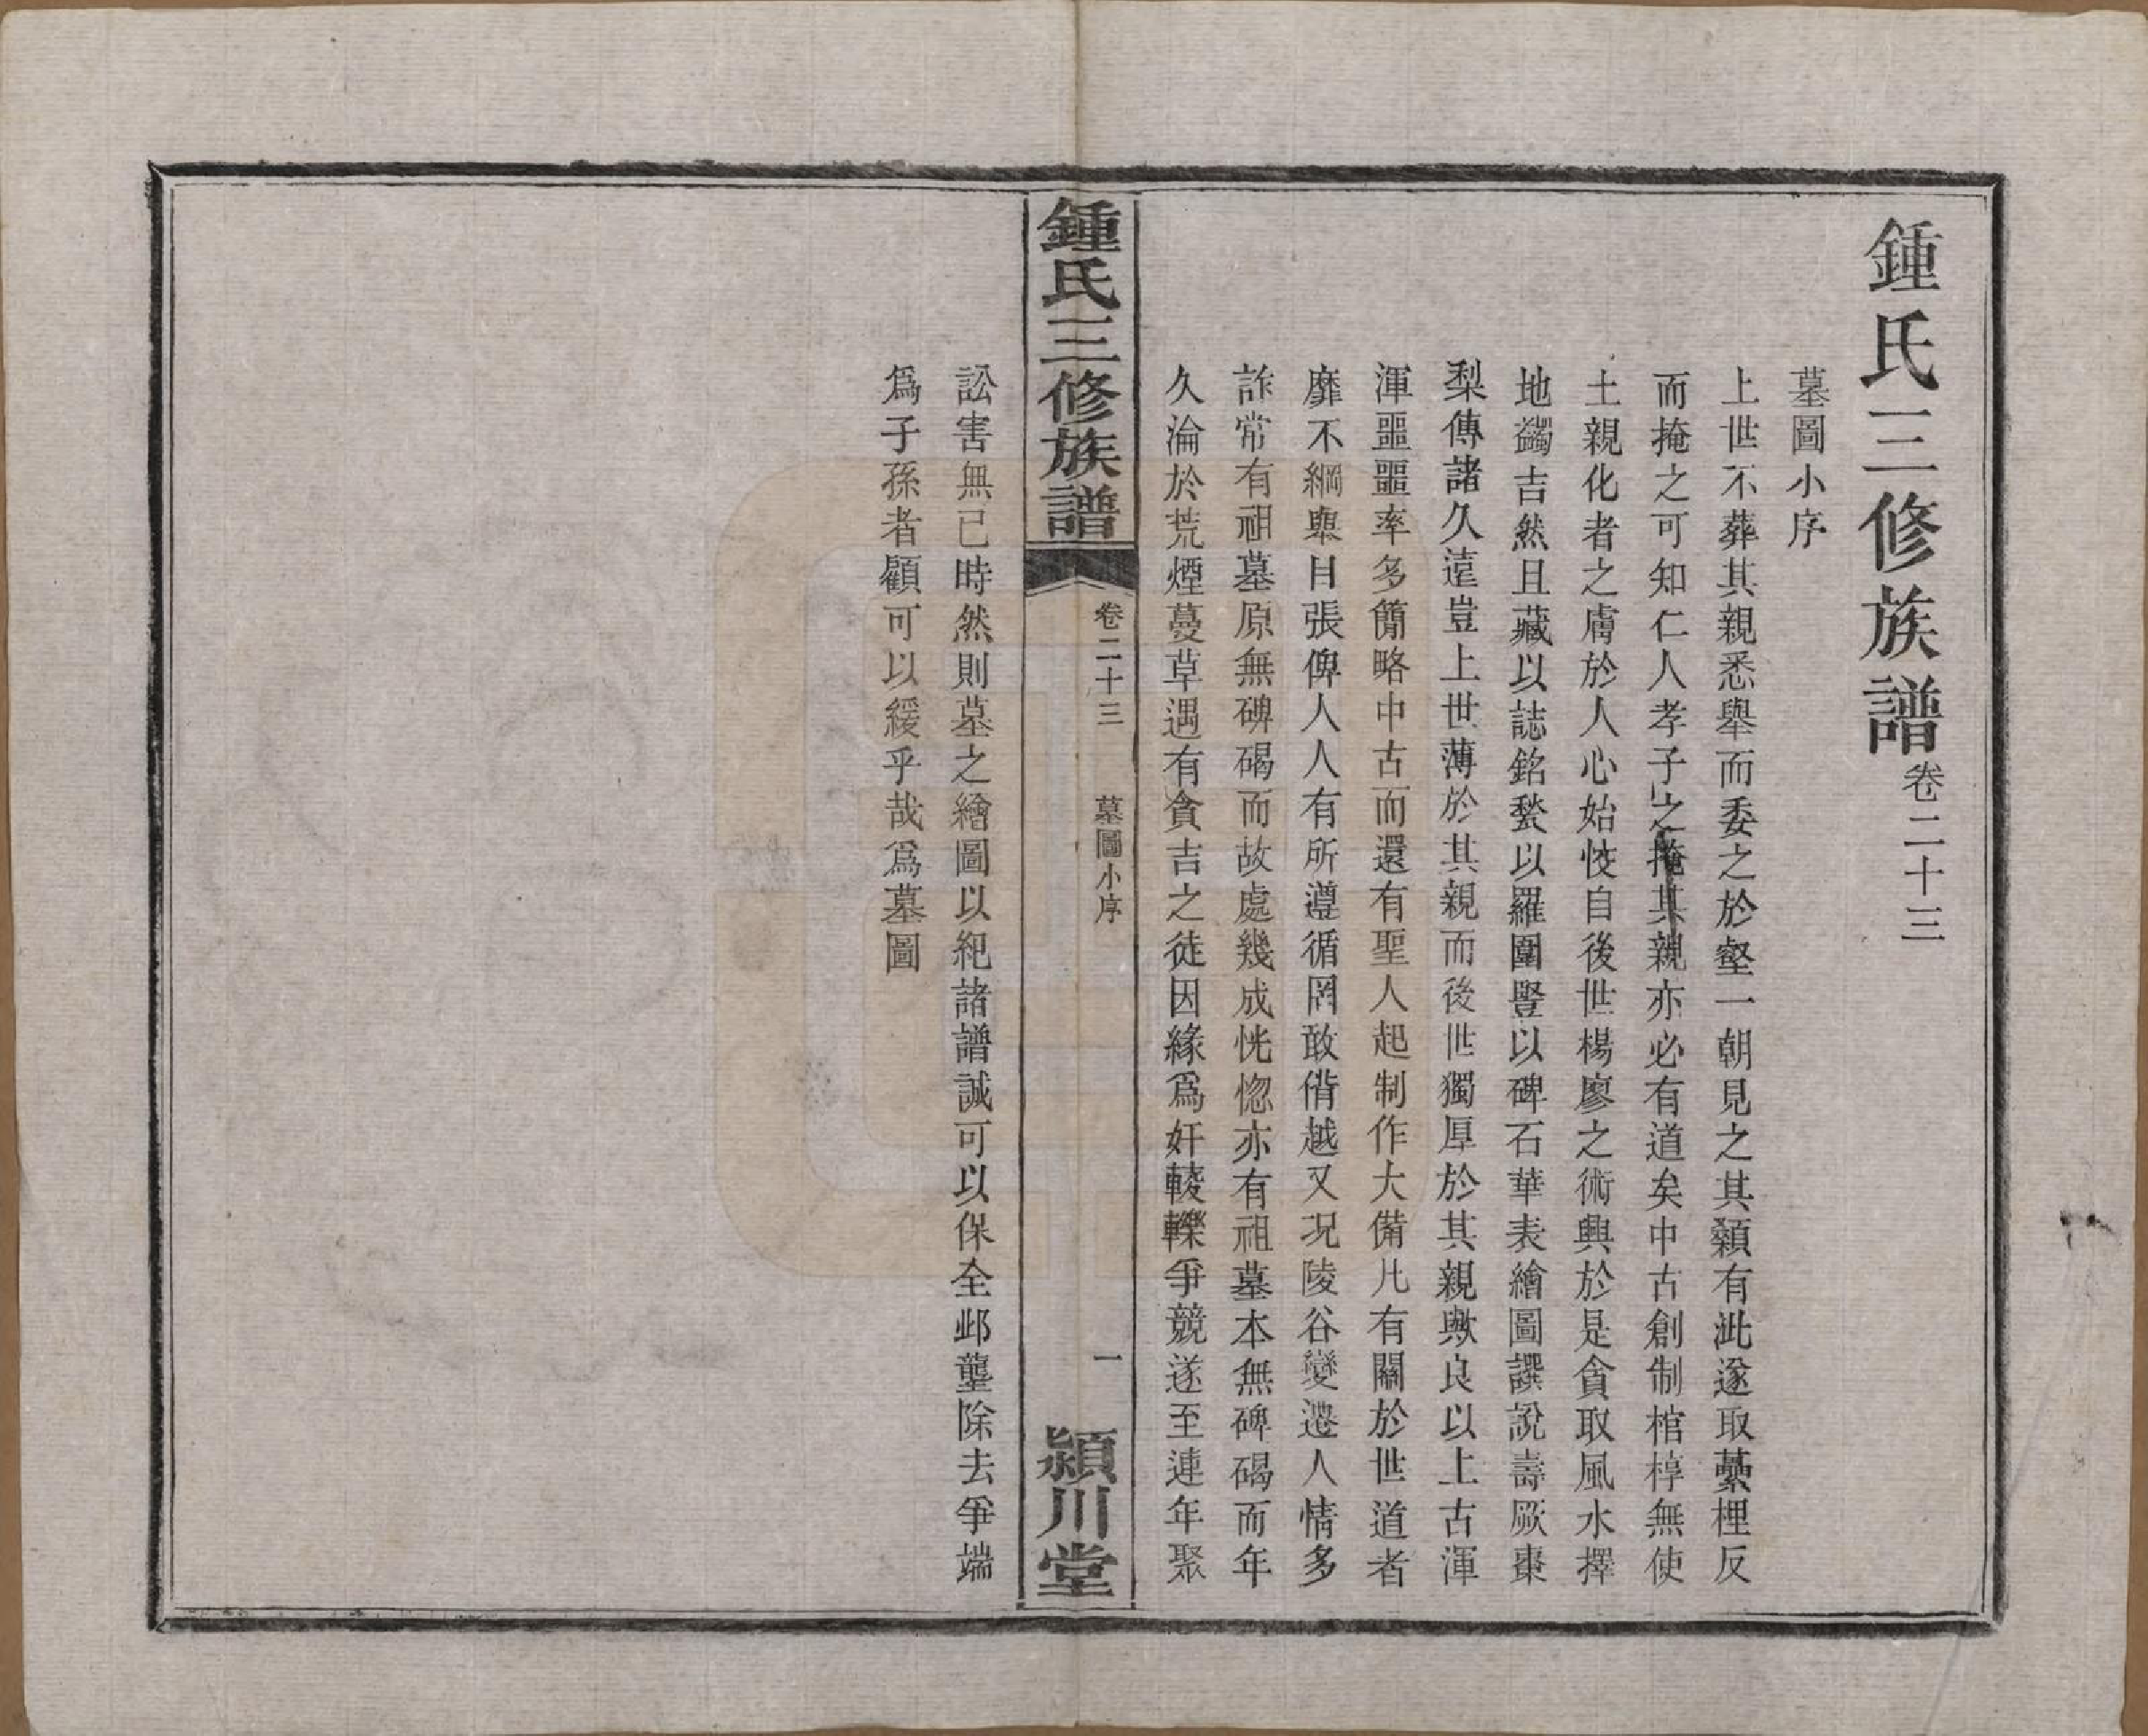 鍾氏三修族譜卷二十三
墓圖小序
上世不葬其親悉舉而委之於壑一朝見之其顙有泚遂取虆梩反
而掩之可知仁人孝子之掩其親亦必有道矣中古創制棺椁無使
土親化者之膚於人心始恔自後世楊廖之術興於是貪取風水擇
地蠲吉然且藏以誌銘甃以羅圍豎以碑石華表繪圖譔說壽厥棗
梨傳諸久遠豈上世薄於其親而後世獨厚於其親歟良以上古渾
渾噩噩率多簡略中古而還有聖人起制作大備凡有關於世道者
靡不綱舉目張俾人人有所遵循罔敢僭越又況陵谷變遷人情多
詐常有祖墓原無碑碣而故處幾成恍惚亦有祖墓本無碑碣而年
久淪於荒煙蔓草遇有貪吉之徒因緣爲奸轇轕爭競遂至連年聚
鍾氏三修族譜
卷二十三
墓圖小序
一
潁川堂
訟害無已時然則墓之繪圖以紀諸譜誠可以保全邱壟除去爭端
爲子孫者顧可以緩乎哉爲墓圖